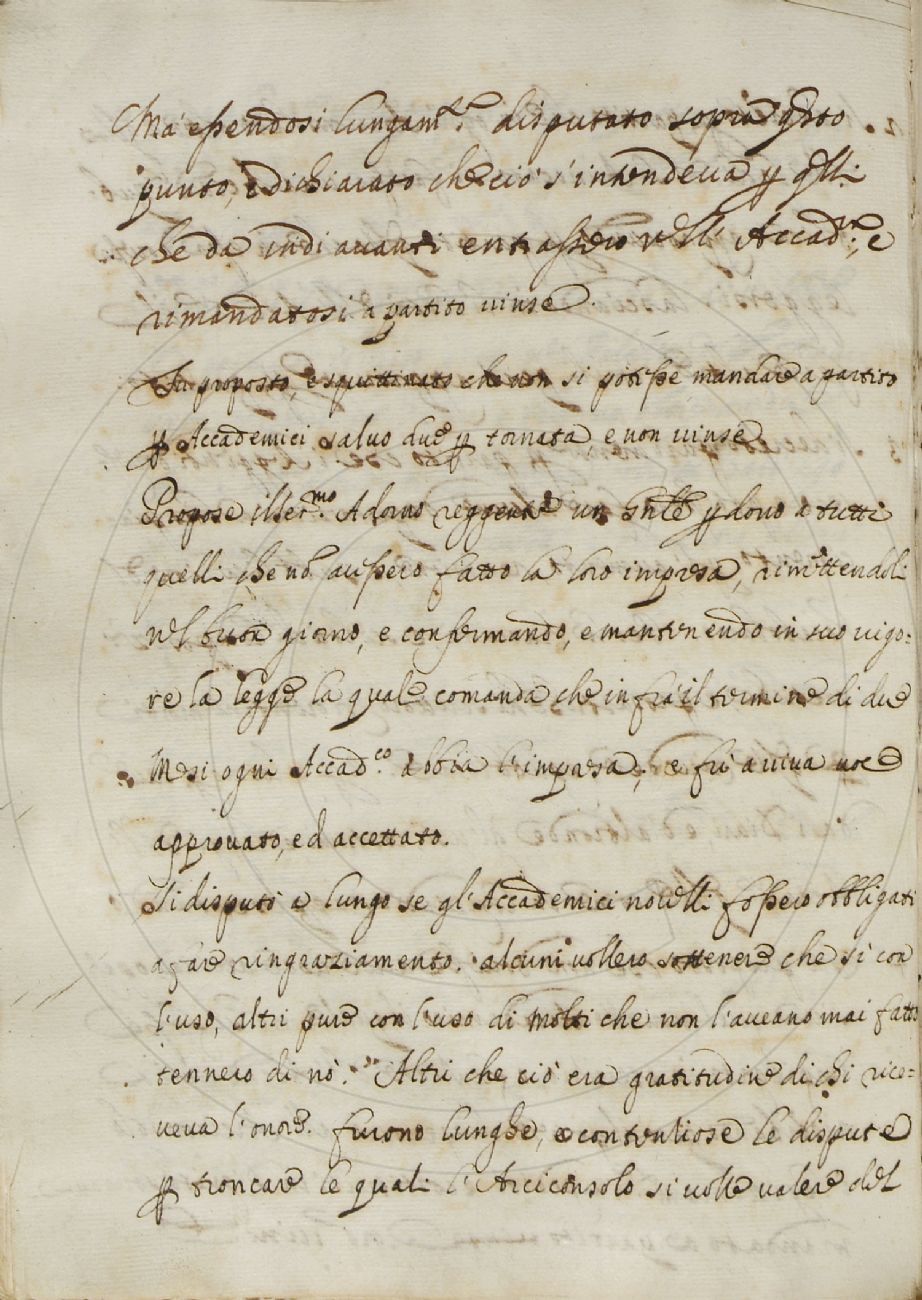 Ma' essendosi lungam.te disputato sopra q̃sto
punto, e dichiarato che ciò s'intendeva ꝑ q̃lli
che da indi avanti entrassero nell' Accad.a; e
rimandatosi a partito vinse.
Fu proposto, e squittinato che non si potesse mandare a partito
ꝑ Accademici salvo due ꝑ tornata, e non vinse.
Propose il Ser.mo Adorno reggente un ꝑdono a tutti
quelli che nõ avessero fatto la loro impresa, rimettendoli
nel buon giorno, e confermando, e mantenendo in suo vigo=
re la legge la quale comanda che infra il termine di due
Mesi ogni Accad.co abbia l'impresa; e fù a viva voce
approvato, ed accettato.
Si disputò a lungo se gl'Accademici novelli fossero obbligati
a fare ringraziamento. alcuni vollero sostenere che sì con
l'uso, altri pure con l'uso di molti che non l'aveano mai fatto
tennero di nò. Altri che ciò era gratitudine di chi rice=
veva l'onore. furono lunghe, e contenziose le dispute
ꝑ troncare le quali l'Arciconsolo si volle valere del